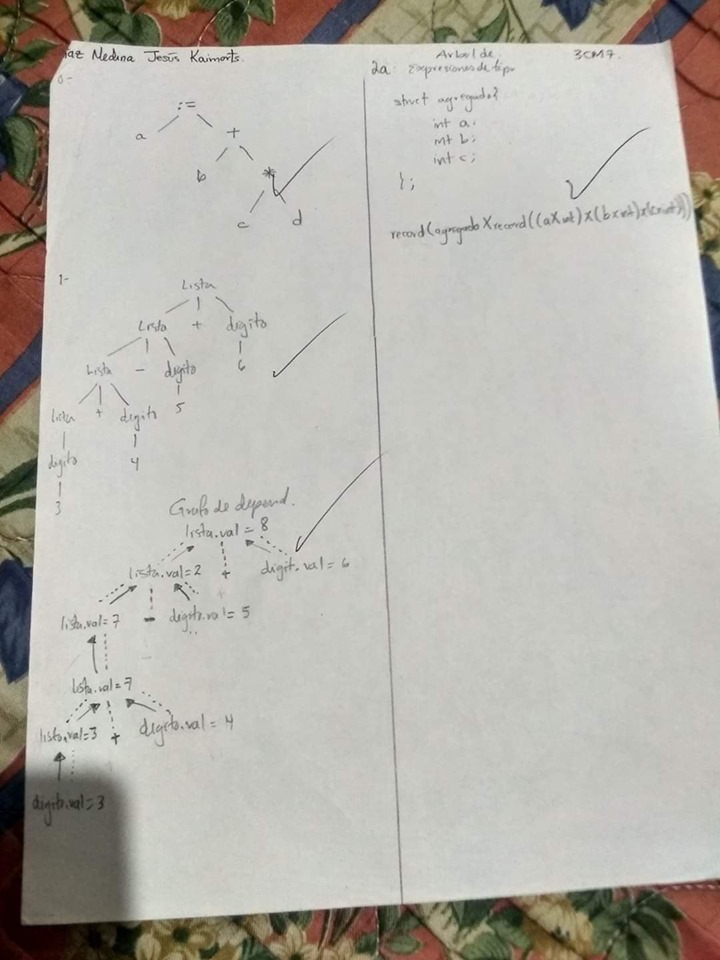 iaz Medina Jesús Kaimorts.
0-
:=
a +
b *
c d
1-
Lista
Lista + digito
Lista - digito 6
lista + digito 5
digito 4
3
Grafo de depend.
lista.val = 8
lista.val = 2 + digit.val = 6
lista.val = 7 - digito.val = 5
lista.val = 7
lista.val = 3 + digito.val = 4
digito.val = 3
Arbol de 3CM7.
2a. Expresiones de tipo
struct agregado{
int a;
int b;
int c;
};
record(agregado X record((a X int) X (b x int) x (c x int)))